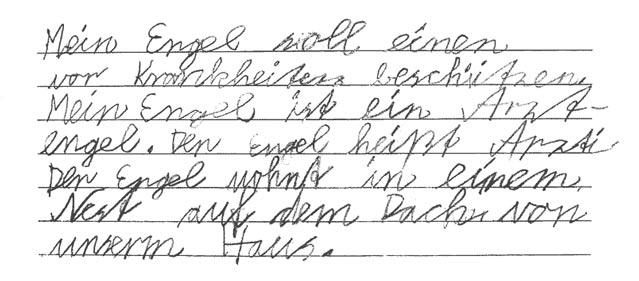 Mein Engel soll einen
von Krankheiten beschützen.
Mein Engel ist ein Arzt-
engel. Den Engel heißt Arzti
Den Engel wohnt in einem
Nest auf dem Dach von
unserm Haus.